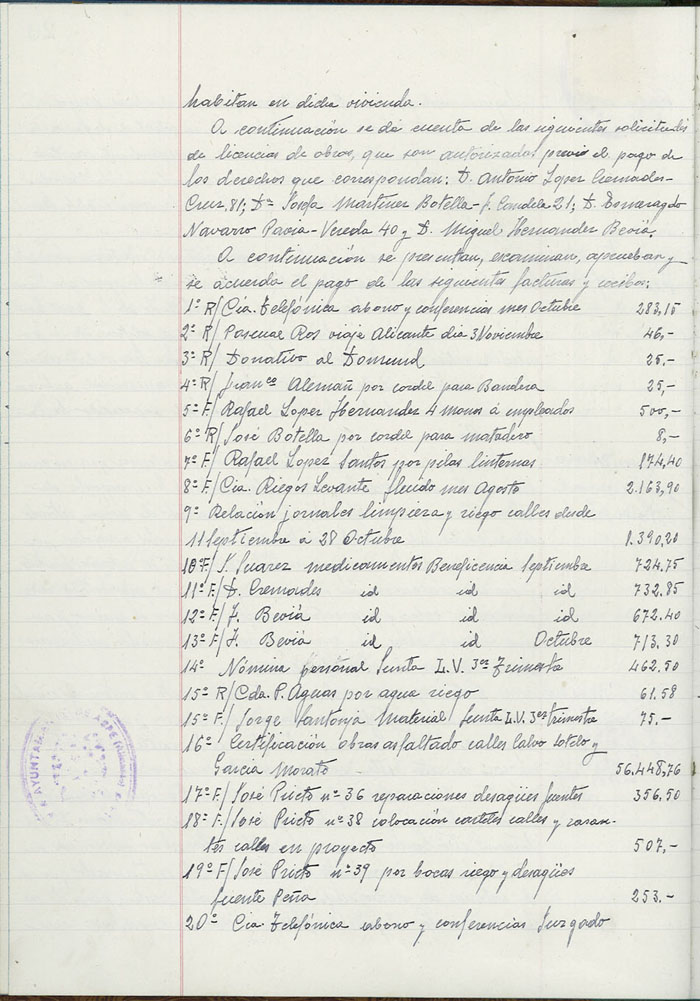 habitan en dicha vivienda.
A continuación se dá cuenta de las siguientes solicitudes
de licencias de obras, que son autorizadas previo el pago de
los derechos que correspondan: D. Antonio Lopez Cremades-
Cruz, 81; Dª Martinez Botella - Candela 21; D. Esmeragdo
Navarro Pavia - Vereda 40 y D. Miguel Hernandez Beviá.
A continuación se presentan, examinan, aprueban y
se acuerda el pago de las siguientes facturas y recibos:
1º R/ Cía. Telefónica abono y conferencias mes Octubre 283,15
2º R/ Pascual Ros viaje Alicante dia 3 Noviembre 46,-
3º R/ Donativo al Domund 25.-
4º R/ Franco Alemañ por cordel para Bandera 25,-
5º F/ Rafael Lopez Hernandez 4 monos á empleados 500,-
6º R/ José Botella por cordel para matadero 8,-
7º F/ Rafael Lopez Santos por pilas linternas 174,40
8º F/ Cia. Riegos Levante fluido mes Agosto 2.163,90
9º Relación jornales limpieza y riego calles desde
11 Septiembre á 28 Octubre 1.390,20
10º F/ S. Suarez medicamentos Beneficencia Septiembre 724.75
11º F/ D. Cremades id id id 732.85
12º F/ J. Beviá id id id 672.40
13º F/ J. Beviá id id Octubre 713.30
14º Nómina personal Junta L.V. 3er Trimestre 462.50
15º R/ Cda. P. Aguas por agua riego 61.58
15º F/ Jorge Santonja Material Junta L.V. 3er trimestre 75.-
16º Certificación obras asfaltado calles Calvo Sotelo y
Garcia Morato 56.448,76
17º F/ José Prieto nº 36 reparaciones desagües fuentes 356,50
18º F/ José Prieto nº 38 colocación carteles calles y rasan-
tes calles en proyecto 507,-
19º F/ José Prieto nº 39 por bocas riego y desagües
fuente Peña 253.-
20º Cia. Telefónica abono y conferencias Juzgado
AYUNTAMIENTO DE ASPE (Alicante)